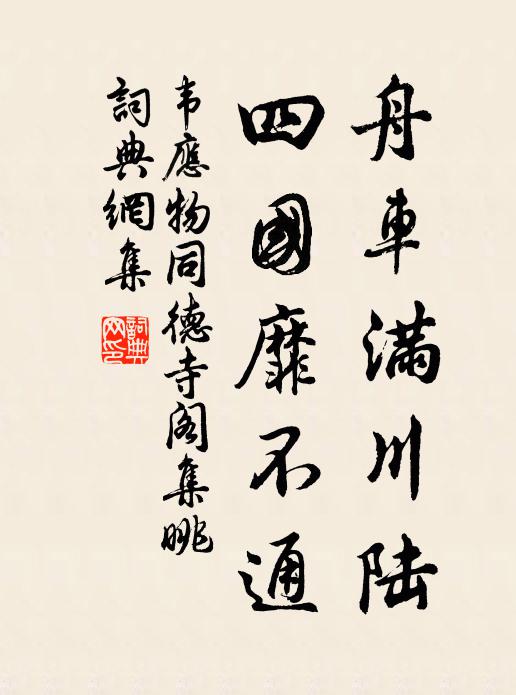 舟車滿川陆
四國靡不通
韦應物同德寺阁集眺
詞典網集
詞典网印